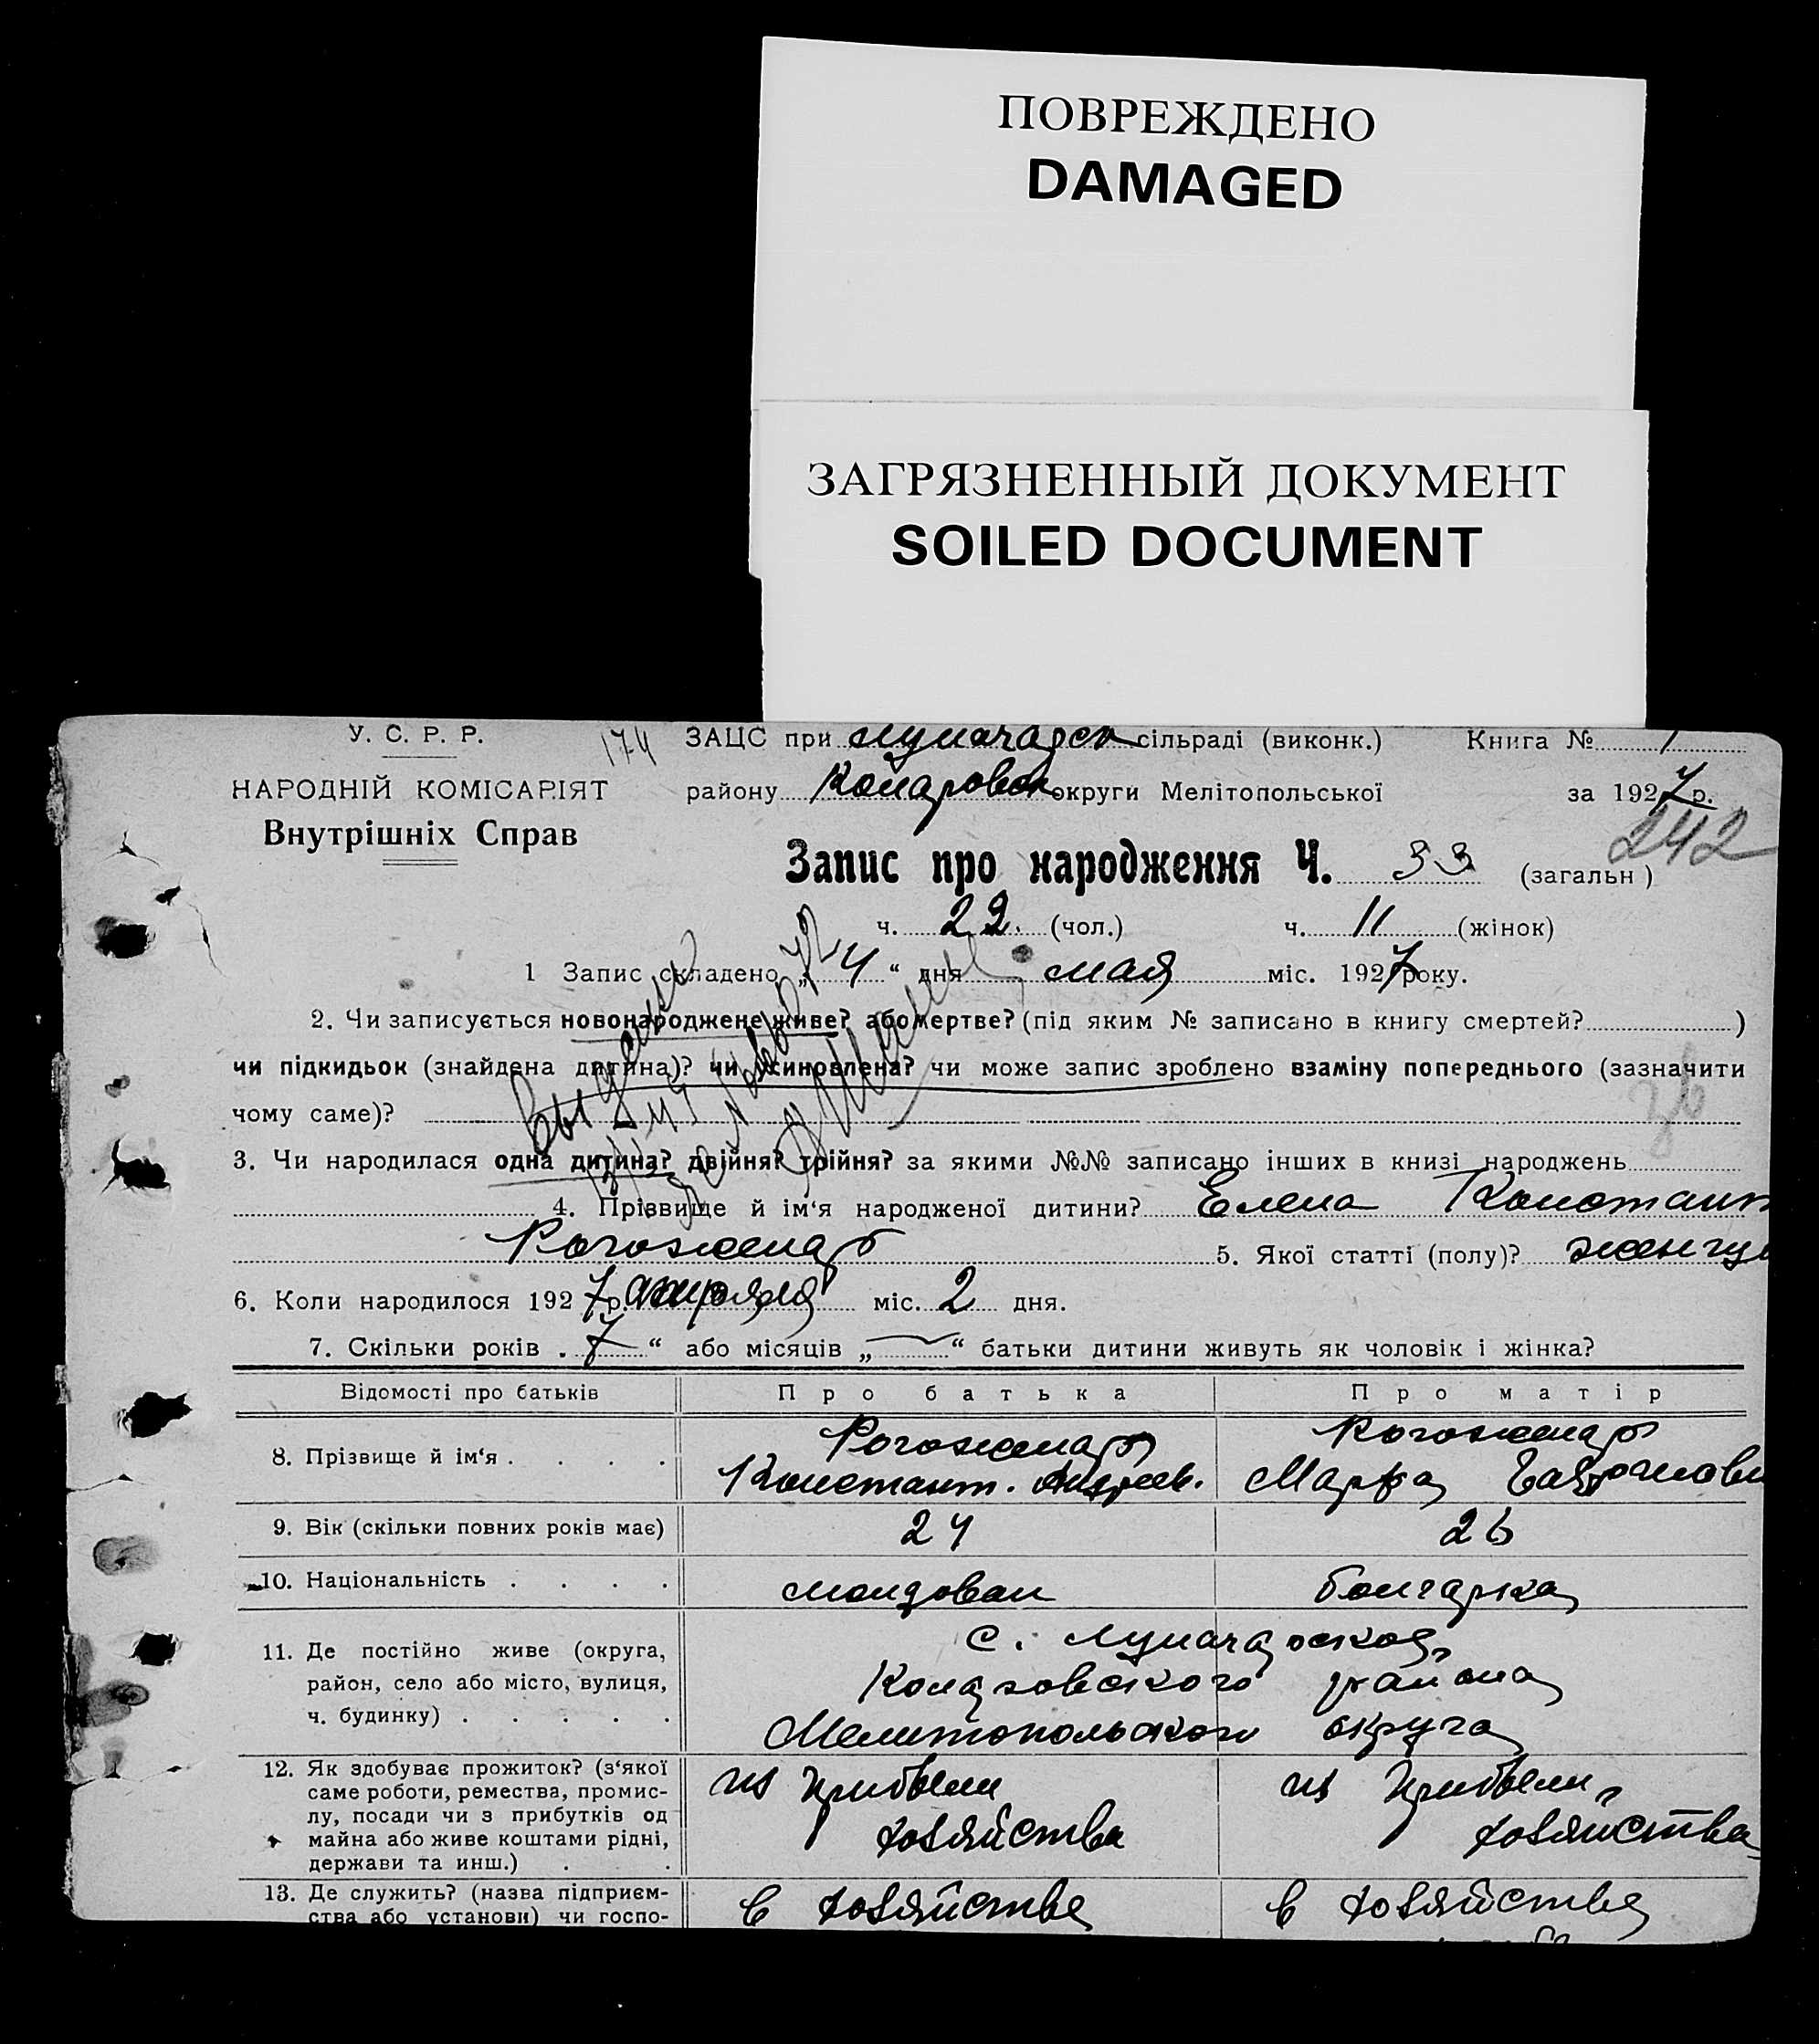 ПОВРЕЖДЕНО
DAMAGED
ЗАГРЯЗНЕННЫЙ ДОКУМЕНТ
SOILED DOCUMENT
У. С. Р. Р. 174 ЗАЦС при Луначарск сільраді (виконк.) Книга № 1
НАРОДНІЙ КОМІСАРІЯТ району Коларовск округи Мелітопольської за 1927 р.
Внутрішніх Справ 242
Запис про народження Ч. 33 (загальн)
ч. 22. (чол.) ч. 11 (жінок)
1 Запис складено „4“ дня мая міс. 1927 року.
2. Чи записується новонароджене живе? або мертве? (під яким № записано в книгу смертей? )
чи підкидьок (знайдена дитина)? чи усиновлена? чи може запис зроблено взаміну попереднього (зазначити
чому саме)?
3. Чи народилася одна дитина? двійня? трійня? за якими №№ записано інших в книзі народжень
4. Прізвище й ім‘я народженої дитини? Елена Констант
5. Якої статті (полу)?
6. Коли народилося 1927 р. апреля міс. 2 дня.
7. Скільки років . 7 “ або місяців „ — “ батьки дитини живуть як чоловік і жінка?
Відомості про батьків Про батька Про матір
8. Прізвище й ім‘я . . . .
Констант. Андреев. Марфа
9. Вік (скільки повних років має) 24 26
10. Національність . . . . молдован болгарка
11. Де постійно живе (округа, с. Луначарское,
район, село або місто, вулиця, Коларовского района
ч. будинку) . . . . . Мелитопольского округа
12. Як здобуває прожиток? (з‘якої из прибыли из прибыли
саме роботи, ремества, промис-
лу, посади чи з прибутків од хозяйства хозяйства
майна або живе коштами рідні,
держави та инш.) . .
13. Де служить? (назва підприєм- в хозяйстве в хозяйстве
ства або установи) чи госпо-